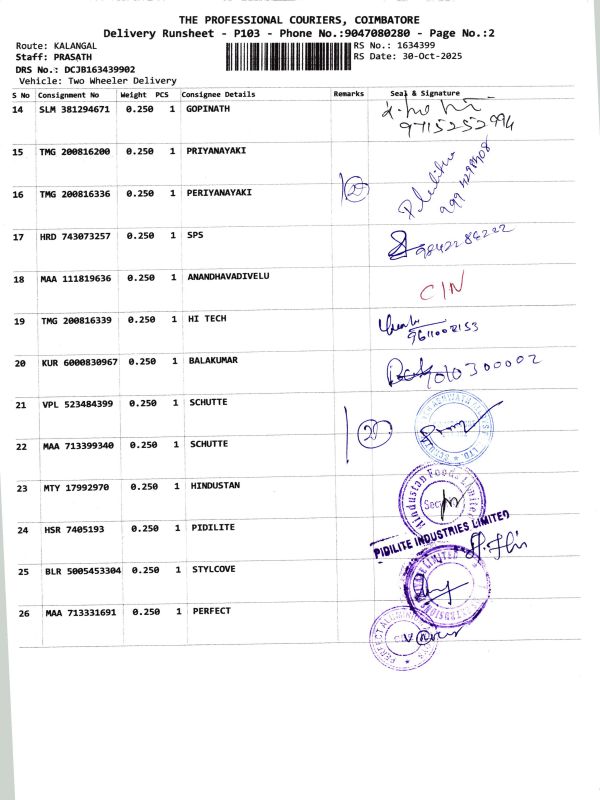 THE PROFESSIONAL COURIERS, COIMBATORE
Delivery Runsheet - P103 - Phone No.:9047080280 - Page No.:2
Route: KALANGAL RS No.: 1634399
Staff: PRASATH RS Date: 30-Oct-2025
DRS No.: DCJB163439902
Vehicle: Two Wheeler Delivery
S No Consignment No Weight PCS Consignee Details Remarks Seal & Signature
14 SLM 381294671 0.250 1 GOPINATH
9715252994
15 TMG 200816200 0.250 1 PRIYANAYAKI
16 TMG 200816336 0.250 1 PERIYANAYAKI
17 HRD 743073257 0.250 1 SPS 9842286222
18 MAA 111819636 0.250 1 ANANDHAVADIVELU CIN
19 TMG 200816339 0.250 1 HI TECH
9611002153
20 KUR 6000830967 0.250 1 BALAKUMAR 9010300002
21 VPL 523484399 0.250 1 SCHUTTE
22 MAA 713399340 0.250 1 SCHUTTE
23 MTY 17992970 0.250 1 HINDUSTAN Hindustan Foods Limited
24 HSR 7405193 0.250 1 PIDILITE PIDILITE INDUSTRIES LIMITED
25 BLR 5005453304 0.250 1 STYLCOVE
26 MAA 713331691 0.250 1 PERFECT